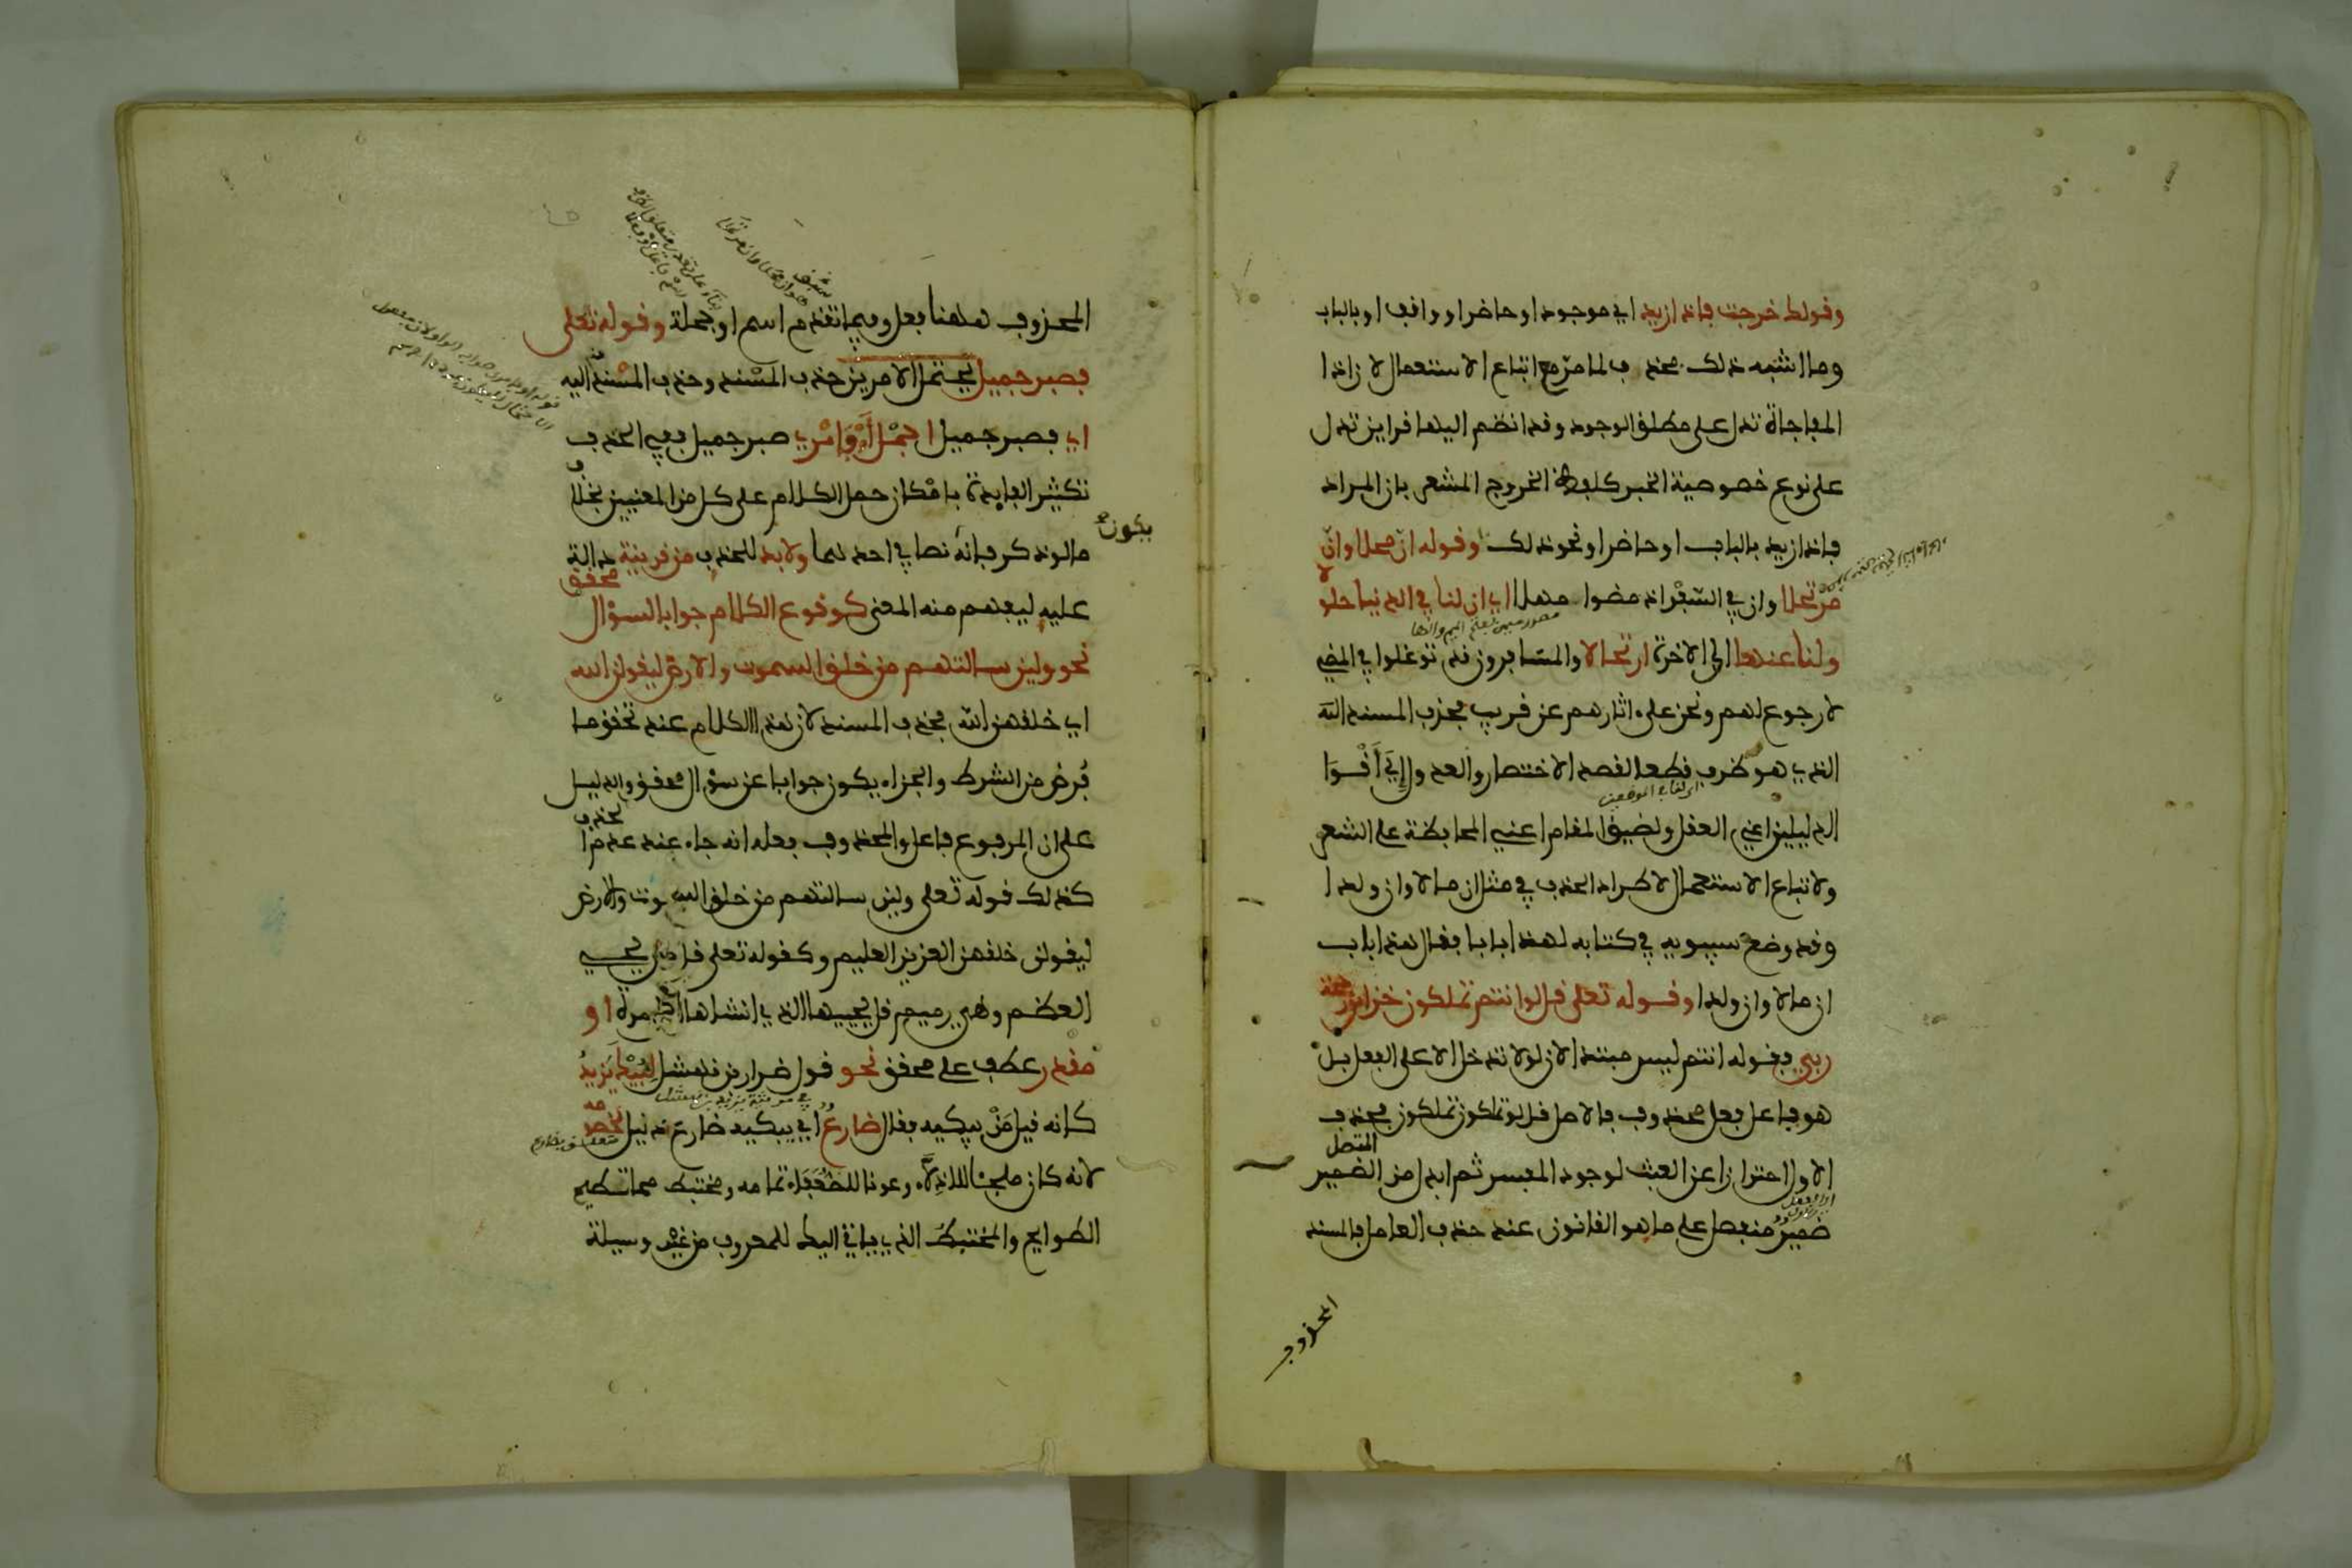 وقولك خرجت فاذا زيد اي موجود او حاضر او واقف او بالباب
وما اشبه ذلك فحذف لما مرّ مع اتباع الاستعمال لان اذا
المفاجاة تدل على مطلق الوجود وقد انظم اليها قراين تدل
على نوع خصوصية الخبر كلفظة الخروج المشعر بان المراد
فاذا زيد بالباب او حاضر او نحو ذلك وقوله ان محلا وانّ
مرتحلا وان في السّفْر اذ مضوا مهلا اي ان لنا في الدنيا حلولا
ولنا عنها الى الاخرة ارتحالا والمسافرون قد توغلوا في المضي
لا رجوع لهم ونحن على اثارهم عن قريب فحذف المسند
الذي هو ظرف قطعا لقصد الاختصار والعدول الى أقْوَا
الدليلين اعني العقل ولضيق المقام اعني المحافظة على الشعر
ولاتباع الاستعمال لاطراد الحذف في مثل ان مالا وان ولدا
وقد وضع سيبويه في كتابه لهذا بابا فقال هذا باب
ان مالا وان ولدا وقوله تعلى قل لو انتم تملكون خزاين رحمة
ربي فقوله انتم ليس مبتدا لان لو لا تدخل الا على الفعل بل
هو فاعل فعل محذوف فالاصل قل لو تملكون تملكون فحذف
الاول احترازا عن العبث لوجود المفسر ثم ابدل من الضمير المتصل
ضمير منفصل على ما هو القانون عند حذف العامل فالمسند
المحذوف
المحذوف هاهنا فعل وفيما تقدم اسم او جملة وقوله تعلى
فصبر جميل يحتمل الامرين حذف المسْند وحذف المسْند اليه
اي فصبر جميل اجْمَل أَوْ فَأمْري صبر جميل ففي الحذف
تكثير الفايدة بامْكان حمل الكلام على كل من المعنيين بخلاف
ما لو ذكر فانه يكون نصا في احدهما ولا بد للحذف من قرينة دالة
عليه ليفهم منه المعنى كوقوع الكلام جوابا لسؤال محقق
نحو ولين سالتهم من خلق السموت والارض ليقولن الله
اي خلقهن الله فحذف المسند لان هذا الكلام عند تحقق ما
فُرض من الشرط والجزاء يكون جوابا عن سؤال محقق والدليل
على ان المرفوع فاعل والمحذوف فعله انه جاء عند عدم الحذف
كذلك قوله تعلى ولين سالتهم من خلق السموت والارض
ليقولن خلقهن العزيز العليم وكقوله تعلى قال من يحيي
العظم وهي رميم قل يحييها الذي انشاها اول مرة او
مقدر عطف على محقق نحو قول ضرار بن نهشل لِيُبْكَ يَزيدُ
كانه قيل مَنْ يبكيه فقال ضارعٌ اي يبكيه ضارع ذليل لخصومه
لانه كان ملجئا للاذلاّء وعونا للضُّعَفَاء تمامه ومختبط مما تطيح
الطوايح والمختبط الذي ياتي اليك للمعروف من غير وسيلة